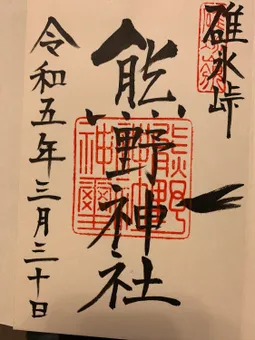 碓氷峠
熊野神社
令和五年三月三十日
熊野
神璽